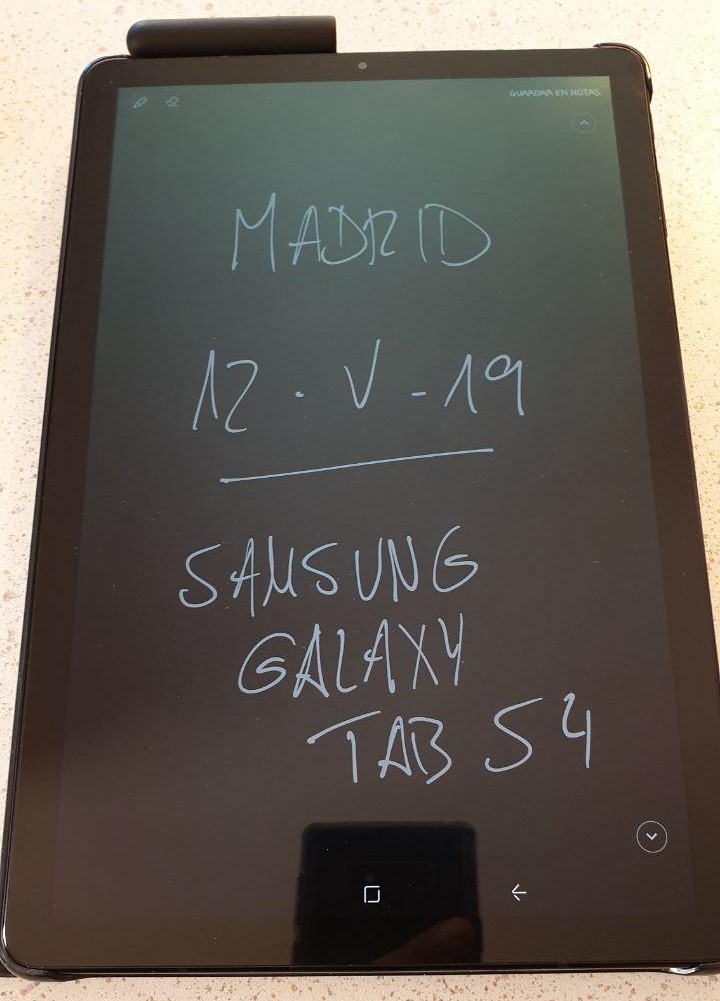 GUARDAR EN NOTAS
MADRID
12 · V - 19
SAMSUNG
GALAXY
TAB S4